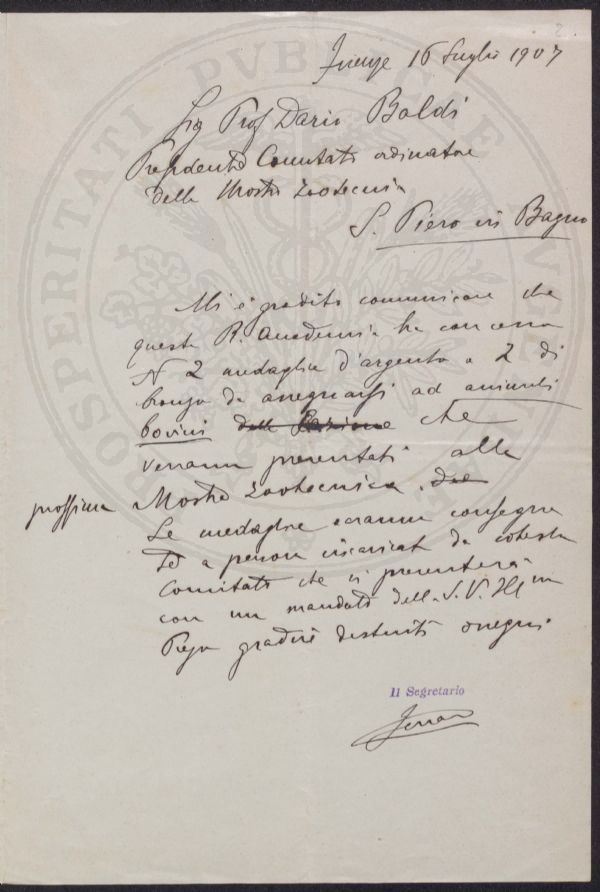 2.
Firenze 16 Luglio 1907
Sig Prof Dario Baldi
Presidente Comitato ordinatore
della Mostra Zootecnica
S. Piero in Bagno
Mi è gradito comunicare che
questa R. Accademia ha concesso
N 2 medaglie d'argento e 2 di
bronzo da assegnarsi ad animali
bovini che
verranno presentati alla
prossima Mostra Zootecnica.
Le medaglie saranno consegna
te a persona incaricata da cotesto
Comitato che si presenterà
con un mandato della S.V. Ill ma
Prego gradire distinti ossequi
Il Segretario
PROSPERITATI PVBLICAE